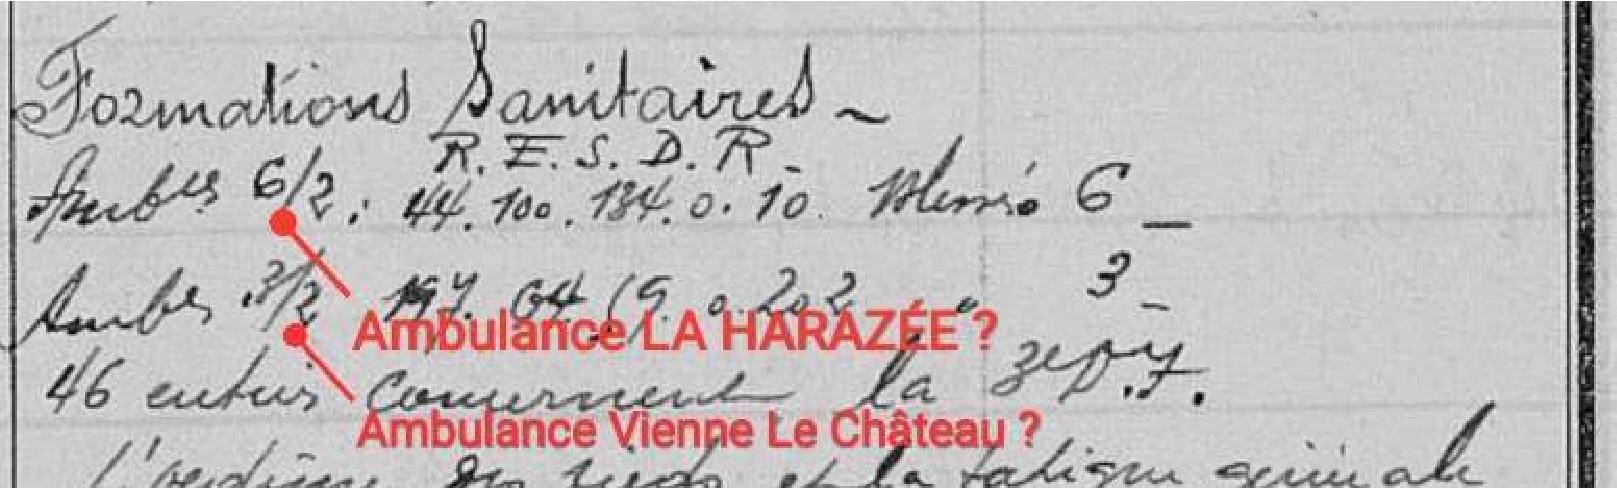 Formations Sanitaires -
R. E. S. D. R -
Ambces 6/2 : 44. 100. 134. 0. 10. Blessés 6 -
Ambces 3/2 197. 64. 0. 202 " 3 -
Ambulance LA HARAZÉE ?
46 entrées concernent la 3e D.I.
Ambulance Vienne Le Château ?
des pieds et la fatigue générale